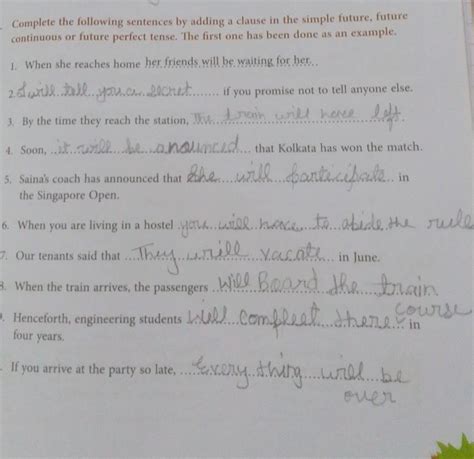 Complete the following sentences by adding a clause in the simple future, future
continuous or future perfect tense. The first one has been done as an example.
1. When she reaches home her friends will be waiting for her.
2. I will tell you a secret if you promise not to tell anyone else.
3. By the time they reach the station, The train will have left.
4. Soon, it will be anounced that Kolkata has won the match.
5. Saina's coach has announced that She will partecipate in
the Singapore Open.
6. When you are living in a hostel you will have to abide the rule
7. Our tenants said that They will vacate in June.
8. When the train arrives, the passengers Will Board the train
9. Henceforth, engineering students Will compleet there course in
four years.
If you arrive at the party so late, Every thing will be
over